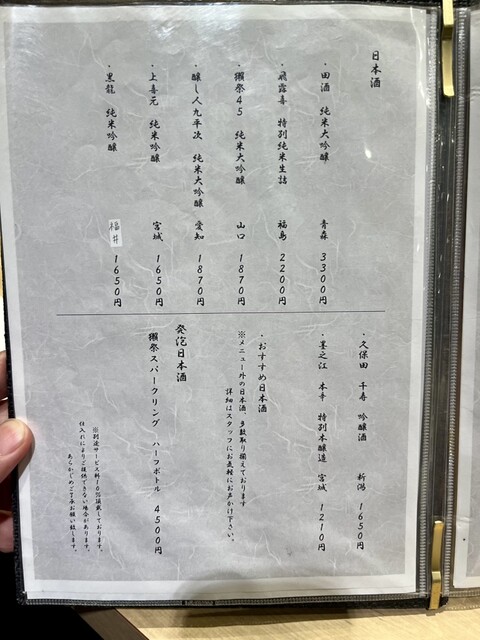 日本酒
・田酒 純米大吟醸 青森 3300円
・飛露喜 特別純米生詰 福島 2200円
・獺祭45 純米大吟醸 山口 1870円
・醸し人九平次 純米大吟醸 愛知 1870円
・上喜元 純米吟醸 宮城 1650円
・黒龍 純米吟醸 福井 1650円
・久保田 千寿 吟醸酒 新潟 1650円
・墨之江 本辛 特別本醸造 宮城 1210円
・おすすめ日本酒
※メニュー外の日本酒、多数取り揃えております
詳細はスタッフにお気軽にお声かけ下さい。
発泡日本酒
獺祭スパークリング ハーフボトル 4500円
※別途サービス料10%頂戴しております。
仕入れによりご提供できない場合があります。
あらかじめご了承お願い致します。